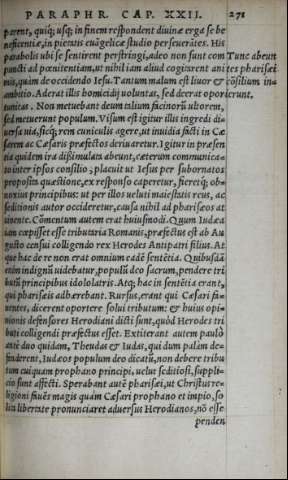 PARAPHR. CAP. XXII. 271
parent, quiq; usq; in finem respondent diuinæ erga se be
neficentiæ, in pietatis euāgelicæ studio perseuerātes. His
parabolis ubi se sentirent perstringi, adeo non sunt com
puncti ad pœnitentiam, ut nihil iam aliud cogitarent ani
mis, quim de occidendo Iesu. Tantum malum est liuor &
ambitio. Aderat illis homicidij uoluntas, sed deerat opor
tunitas. Non metuebant deum talium facinorū ultorem,
sed metuerunt populum. Visum est igitur illis ingredi di
uersa uia, sicq; rem cuniculis agere, ut inuidia facti in Cæ
sarem ac Cæsaris præfectos deriuaretur. Igitur in præsen
tia quidem ira dißimulata abeunt, cæterum communica
to inter ipsos consilio; placuit ut Iesus per subornatos
proposita quæstione, ex responso caperetur, fieretq; ob=
noxius principibus: ut per illos ueluti maiestatis reus, ac
seditionis autor occideretur, causa nihil ad phariseos at
tinente. Cōmentum autem erat huiusmodi. Quum Iudæa
iam cœpisset esse tributaria Romanis, præfectus est ab Au
gusto censui colligendo rex Herodes Antipatri filius. At
que hac de re non erat omnium eadē sentētia. Quibusdā
enim indignū uidebatur, populū deo sacrum, pendere tri
butū principibus idololatris. Atq; hac in sentētia erant,
qui phariseis adhærebant. Rursus, erant qui Cæsari fa=
uentes, dicerent oportere solui tributum: & huius opi=
nionis defensores Herodiani dicti sunt, quòd Herodes tri
buti colligendi præfectus esset. Extiterant autem paulò
ante duo quidam, Theudas & Iudas, qui dum palàm de=
finderent, Iudæos populum deo dicatū, non debere tribu
tum cuiquam prophano principi, uelut seditiosi, supplic=
cio sunt affecti. Sperabant autē pharisei, ut Christus re=
ligioni fauēs magis quàm Cæsari prophano et impio, so
luta libertate pronunciaret aduersus Herodianos, nō esse
penden
Tunc abeun
tes pharisei
cōsilium in=
ierunt.